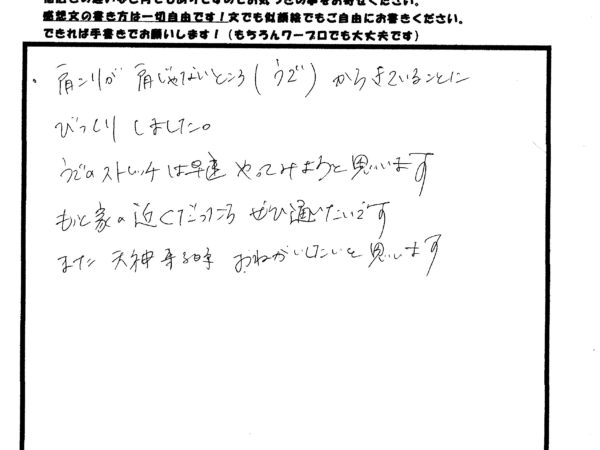 感想文の書き方は一切自由です！文でも似顔絵でもご自由にお書きください。
できれば手書きでお願いします！（もちろんワープロでも大丈夫です）
・肩こりが 肩じゃないところ(うで)からきていることに
びっくりしました。
うでのストレッチは早速やってみようと思います
もっと家の近くだったら ぜひ通いたいです
また 天神 おねがいしたいと思います